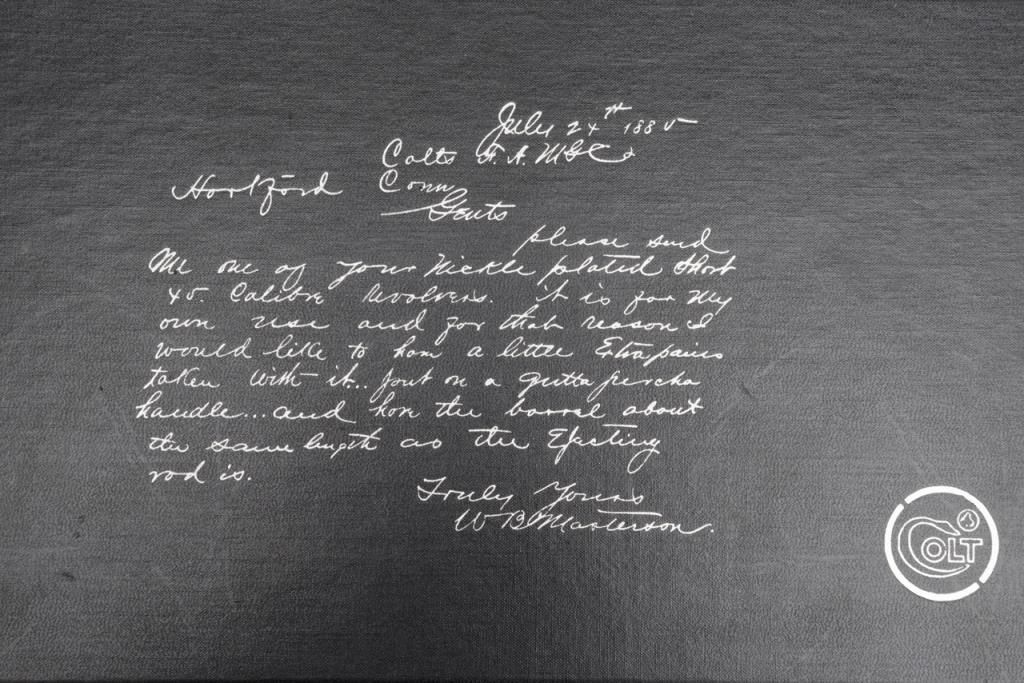 July 24th 1885
Colts F. A. MFG Co
Hartford Conn
Gents
please send
Me one of your Nickle plated Short
45. Calibre revolvers. it is for My
own use and for that reason I
would like to have a little Extra pains
taken with it... put on a gutta percha
handle... and have the barrel about
the same length as the Ejecting
rod is.
Truly Yours
W B Masterson.
COLT